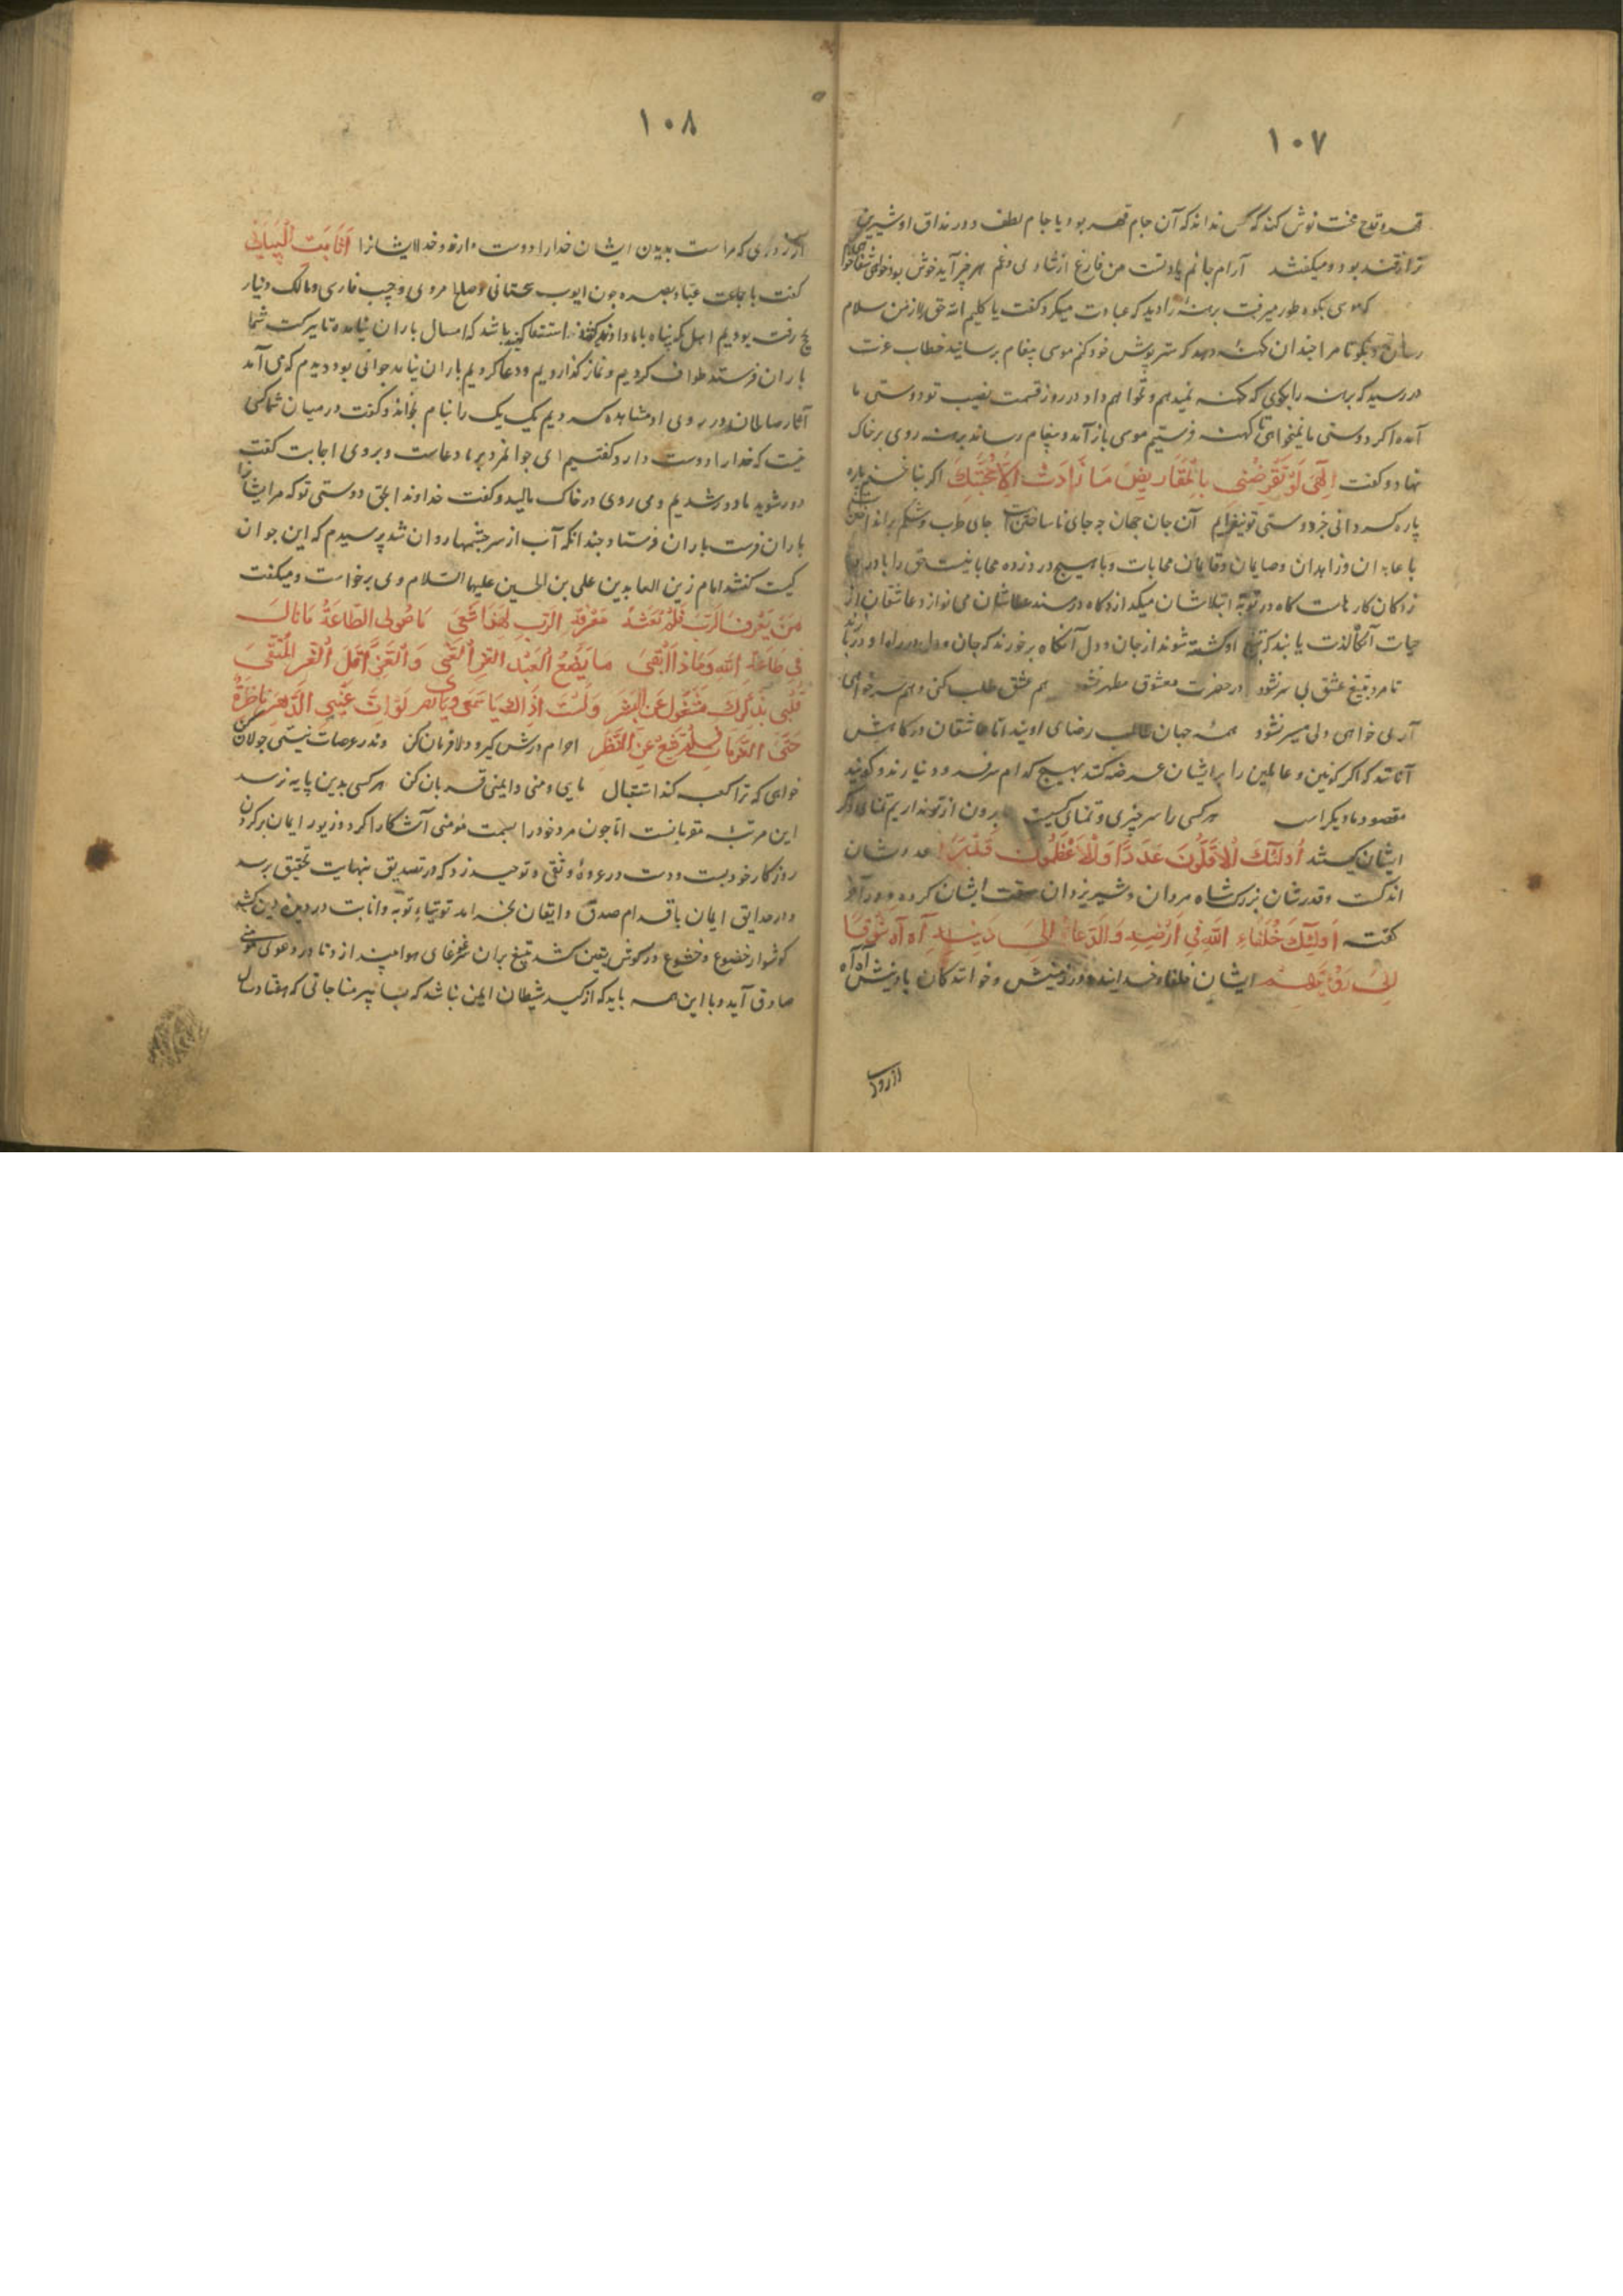 ۱۰۷
قهر و قدح محنت نوش کند که کس نداند که آن جام قهر بود یا جام لطف و در مذاق او شیرین
تر از قند بود و میکفتند آرام جانم یاد تست من فارغ از شادی و غم هر چز آید خوش بود خواهی شفا خواهی الم
که موسی بکوه طور میرفت برهنهٔ را دید که عبادت میکرد کفت یا کلیم الله حق را از من سلام
رسان و بکو تا مرا چندان کهنهٔ دهد که ستر پوش خود کنم موسی پیغام برسانید خطاب عزت
در رسید که برهنه را بکوی که کهنه نمیدهم و نخواهم داد در روز قسمت نصیب تو دوستی ما
آمده اکر دوستی ما نمیخواهی تا کهنه فرستیم موسی باز آمد و پیغام رساند برهنه روی بر خاک
نهاد و کفت الهی لو تقرضنی بالمقاریض ما زادت الا محبتک اکر بناخنم پاره
پاره کسه دانی جز دوستی تو نیفزایم آن جان جهان چه جای ناساختن است جای طرب و شکم براند اختن است
با عابدان و زاهدان و صایمان و قایمان محابات و با هیچ درد زده محابا نیست حق را با درد
زدکان کارهاست کاه در بوتهٔ ابتلاشان میکدازد کاه در مسند عطاشان می نوازد عاشقان از
حیات آنکه لذت یابند که بتیغ او کشته شوند از جان و دل آنکاه برخورند که جان و دل در راه او در بازند
تا مرد بتیغ عشق بی سر نشود در حضرت معشوق مطهر نشود هم عشق طلب کنی و هم سر خواهی
آری خواهی ولی میسر نشود همه جهان طالب رضای اویند اما عاشقان درکاهش
آنانند که اکر کونین و عالمین را بر ایشان عرضه کنند بهیچ کدام سر فرود نیارند و کویند
مقصود ما دیکر است هر کسی را سر چیزی و تمنای کسیست ما برون از تو نداریم تمنای دکر
ایشان کیستند اولئک الاقلون عددا والاعظمون قدرا عددشان
اندکست و قدرشان بزرک شاه مردان و شیر یزدان صفت ایشان کرده و در آخر
کفته اولئک خلفاء الله فی ارضه والدعاة الی دینه آه آه شوقا
الی رؤیتهم ایشان خلفاء خدایند در زمینش و خوانندکان بادینش آه آه
از روی
۱۰۸
از روی که مراست بدیدن ایشان خدا را دوست دارند و خدا ایشانرا ثابت البنانی
کفت با جماعت عباد بصره چون ایوب سختانی و صلح مروی و حبیب فارسی و مالک دینار
بحج رفته بودیم اهل مکه پناه بما دادند و کفتند استسقا کنید باشد که امسال باران نیامده تا ببرکت شما
باران فرستد طواف کردیم و نماز کذاردیم و دعا کردیم باران نیامد جوانی بود دیدم که می آمد
آثار صلحان در روی او مشاهده کردیم یک یک را بنام بخواند و کفت در میان شما کسی
نیست که خدا را دوست دارد کفتیم ای جوانمرد بر ما دعاست و بروی اجابت کفت
دور شوید ما دور شدیم و می روی در خاک مالید و کفت خداوندا بحق دوستی تو که مر ایشانرا
باران فرست باران فرستاد چندانکه آب از سر چشمها روان شد پرسیدم که این جوان
کیست کفتند امام زین العابدین علی بن الحسین علیها السلام وی برخواست و میکفت
من یعرف الرب فلم تغنه معرفة الرب فهذا شقی ما ضر لی الطاعة ما نال
فی طاعة الله وماذا القی ما یصنع العبد العز الغنی والعز کل العز للمتقی
قلبی بذکرک مشغول عن البشر ولست انساک یا سمعی ویا بصر لو ان عینی الدهر ناظرة
حتی الممات فلم ترفع عن النظر احرام درش کیر و دلا فرمان کن وندر عرصات نیستی جولان کن
خواهی که ترا کعبه کند استقبال مایی و منی و ایمنی قربان کن هر کسی بدین پایه نرسد
این مرتبه مقربانست اما چون مرد خود را بسمت مؤمنی آشکارا کرد و زیور ایمان بر کردن
روزکار خود بست و دست در عروهٔ وثقی و توحید زد که در تصدیق بنهایت تحقیق برسد
و در حدایق ایمان باقدام صدق و ایقان بخرامد توتیاء توبه و انابت در دیدهٔ دین کشد
کوشوار خضوع و خشوع در کوش یقین کشد تیغ بران غوغای هوا میند ازد تا در دعوی مؤمنی
صادق آید و با این همه باید که از کید شیطان ایمن نباشد که بسا پیر مناجاتی که هفتاد سال